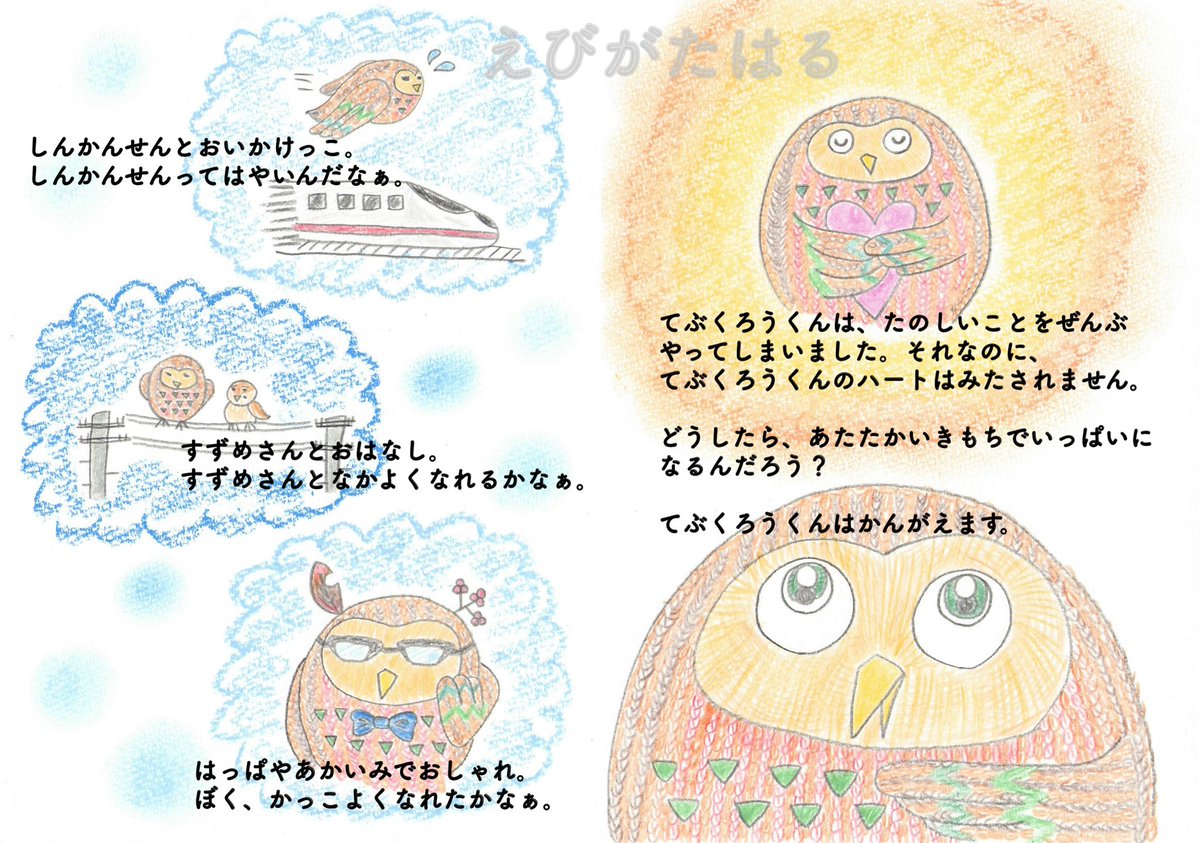 えびがたはる
しんかんせんとおいかけっこ。
しんかんせんってはやいんだなぁ。
すずめさんとおはなし。
すずめさんとなかよくなれるかなぁ。
はっぱやあかいみでおしゃれ。
ぼく、かっこよくなれたかなぁ。
てぶくろうくんは、たのしいことをぜんぶ
やってしまいました。それなのに、
てぶくろうくんのハートはみたされません。
どうしたら、あたたかいきもちでいっぱいに
なるんだろう？
てぶくろうくんはかんがえます。